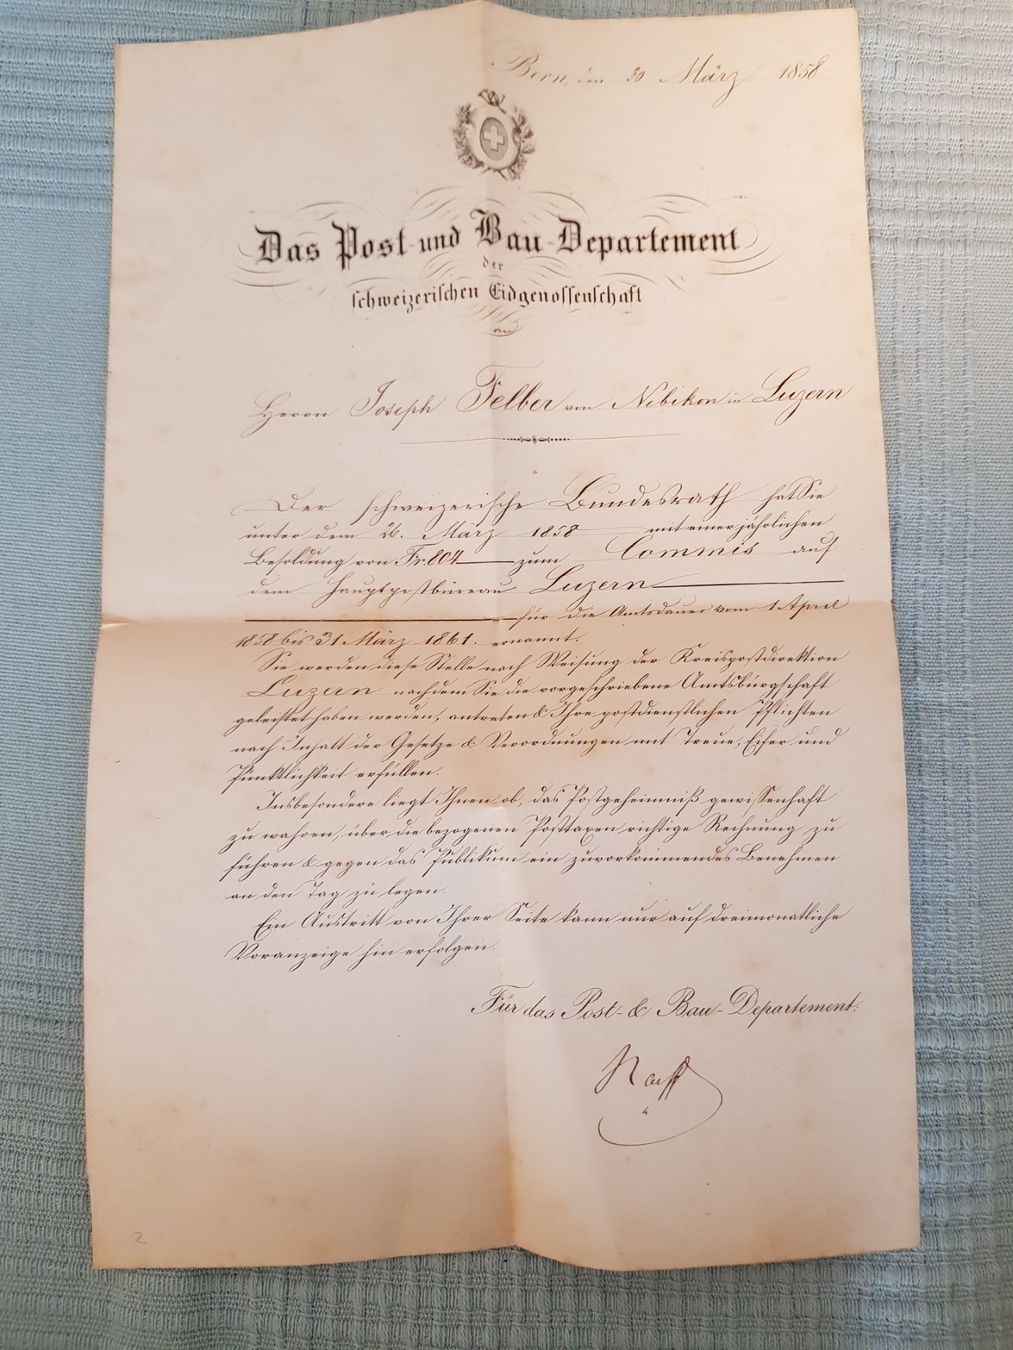 Bern, den 30 März 1858
Das Post- und Bau-Departement
der
schweizerischen Eidgenossenschaft
an
Herrn Joseph Felber von Nebikon in Luzern
Der schweizerische Bundesrath hat Sie
unter dem 26. März 1858 mit einer jährlichen
Besoldung von Fr. 804 zum Commis auf
dem Hauptpostbüreau Luzern
für die Amtsdauer vom 1. April
1858 bis 31. März 1861. ernannt.
Sie werden diese Stelle nach Weisung der Kreispostdirektion
Luzern nachdem Sie die vorgeschriebene Amtsbürgschaft
geleistet haben werden, antreten & Ihre postdienstlichen Pflichten
nach Inhalt der Gesetze & Verordnungen mit Treue, Eifer und
Pünktlichkeit erfüllen.
Insbesondere liegt Ihnen ob, das Postgeheimniß gewissenhaft
zu wahren, über die bezogenen Posttaxen richtige Rechnung zu
führen & gegen das Publikum ein zuvorkommendes Benehmen
an den Tag zu legen.
Ein Austritt von Ihrer Seite kann nur auf dreimonatliche
Voranzeige hin erfolgen.
Für das Post- & Bau-Departement:
Naeff
2